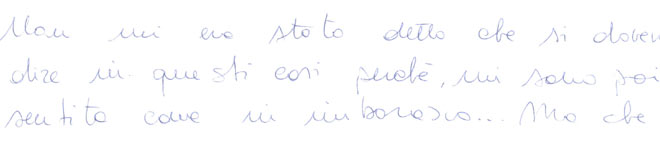 Non mi ero stato detto che si doveva
dire in questi casi perché, mi sono poi
sentito come in imbarazzo... Ma che